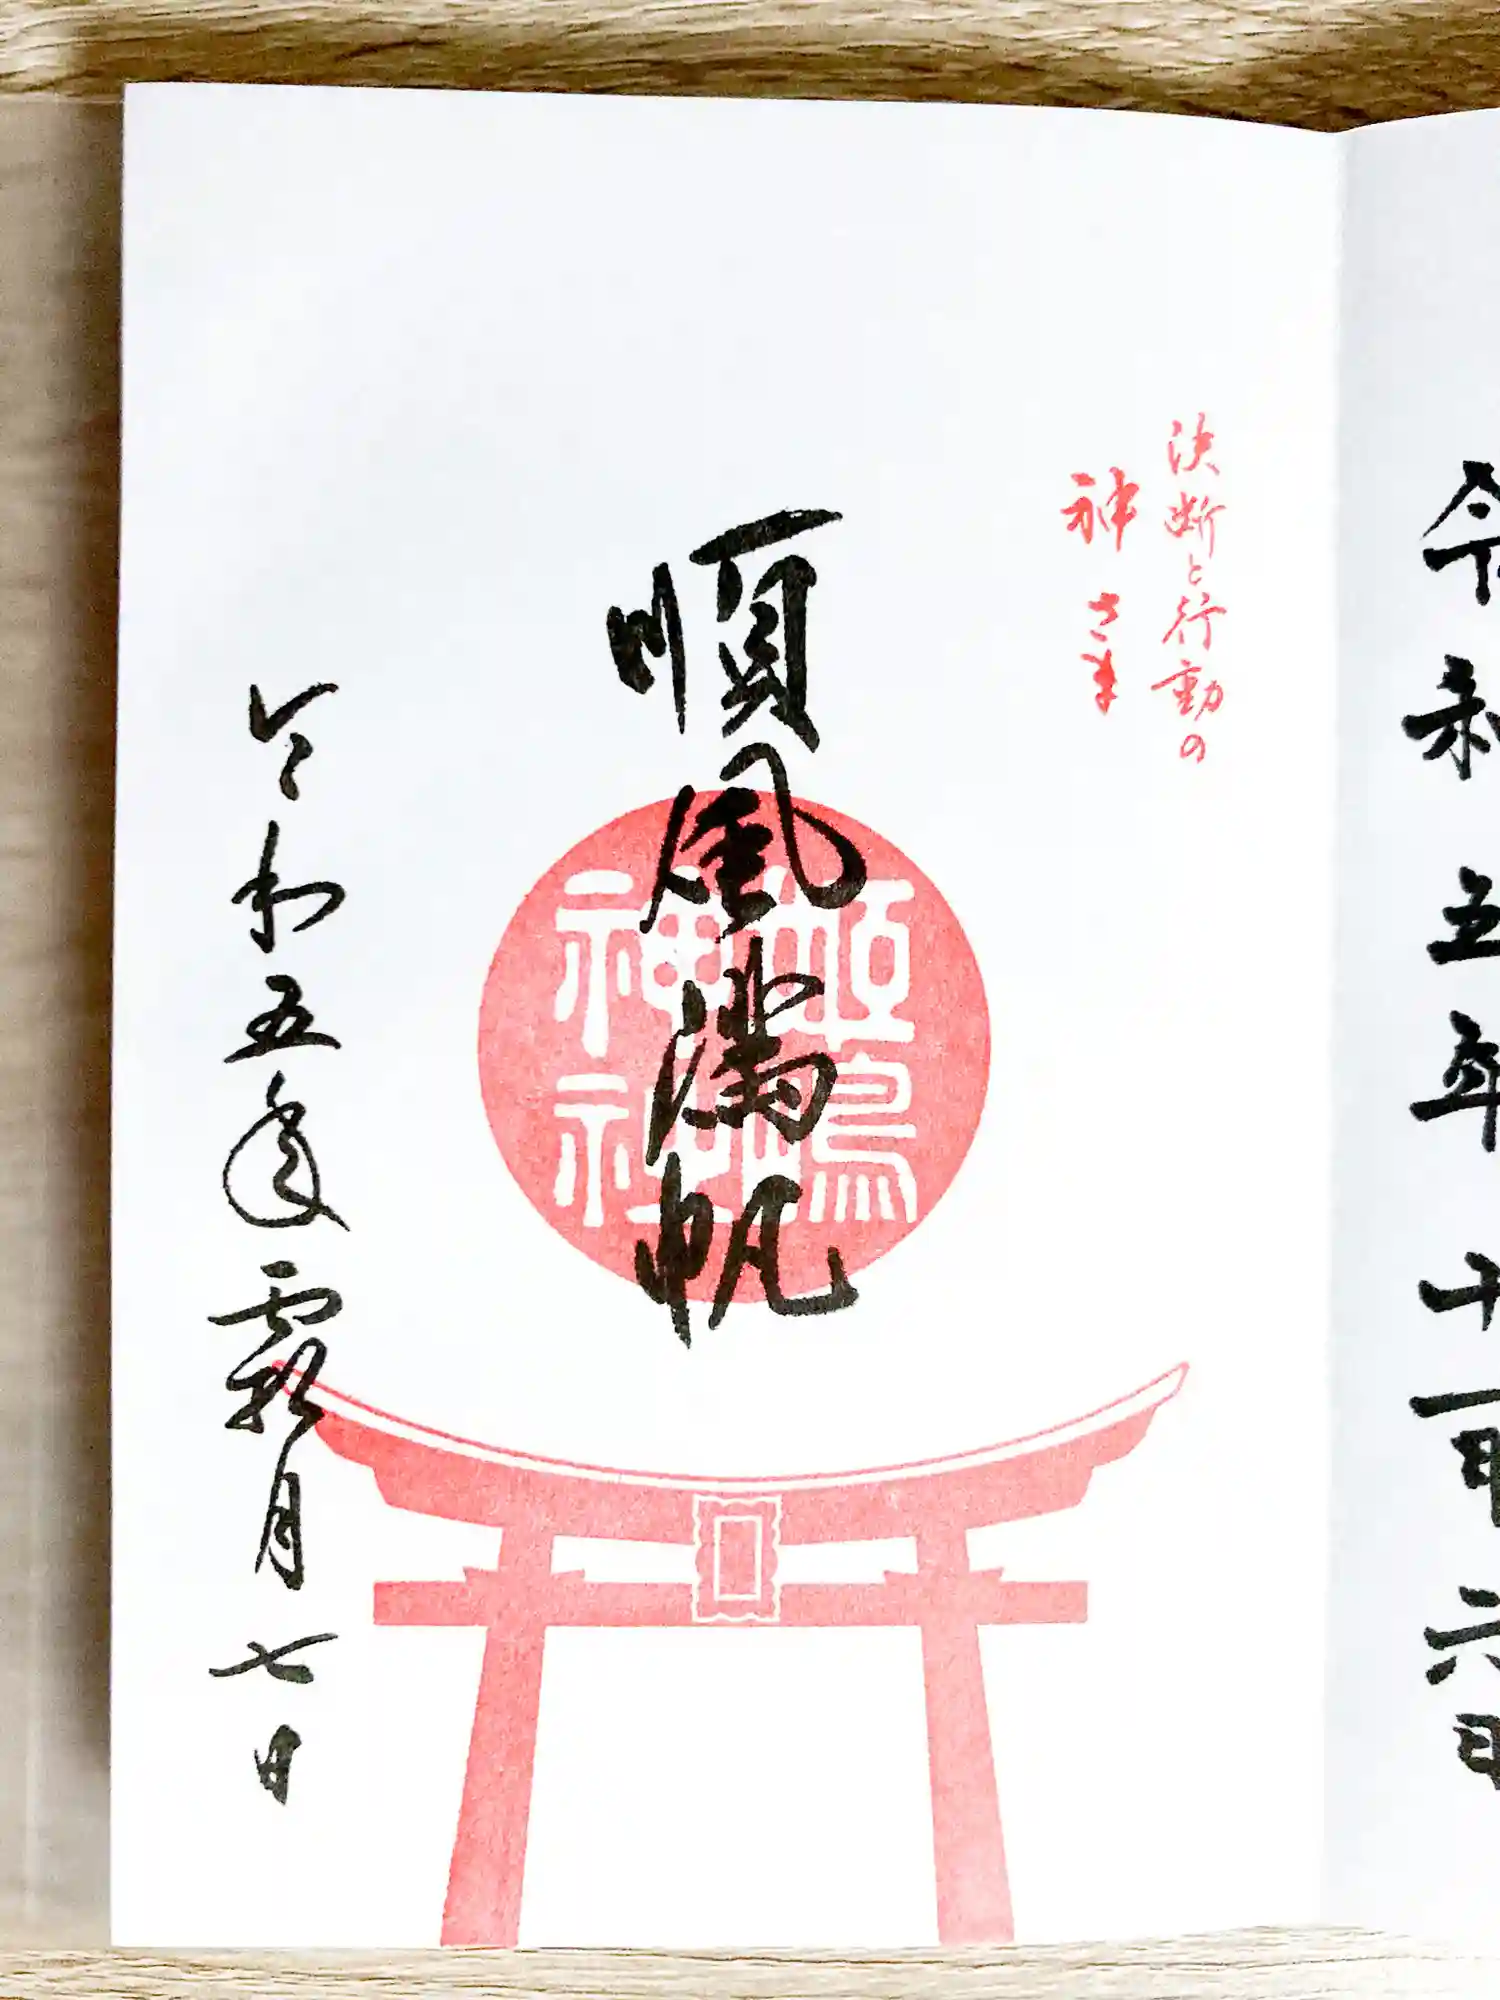 令和五年十一月六日
決断と行動の
神さま
順風満帆
姫嶋
神社
令和五年霜月七日